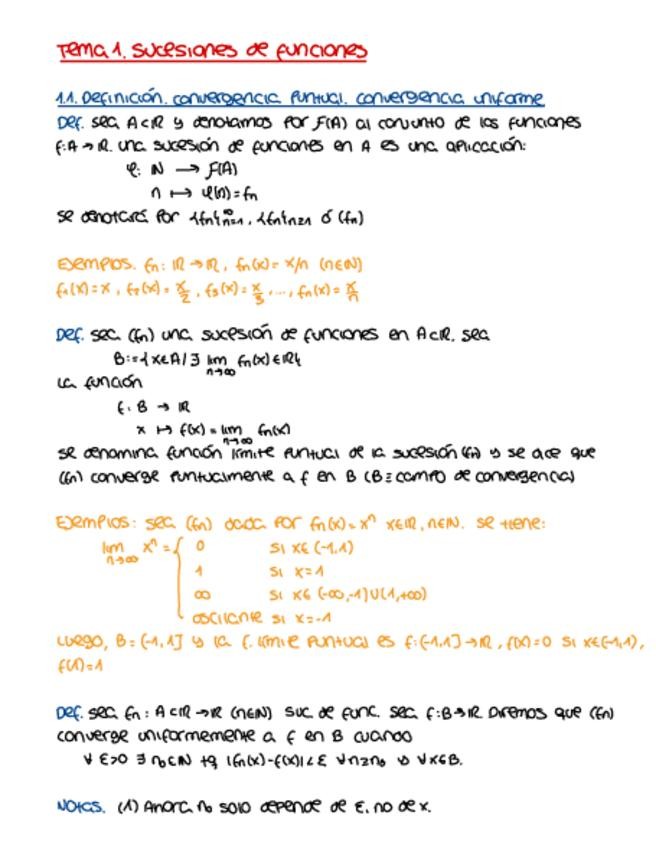 Tema 1. Sucesiones de funciones
1.1. Definición. convergencia puntual. convergencia uniforme
Def. sea A⊂ℝ y denotamos por F(A) al conjunto de las funciones
f: A → ℝ. una sucesión de funciones en A es una aplicación:
φ: ℕ → F(A)
n ↦ φ(n) = fn
se denotará por {fn}∞n=1, {fn}n≥1 ó (fn)
Ejemplos. fn: ℝ → ℝ, fn(x) = x/n (n∈ℕ)
f1(x) = x, f2(x) = x/2, f3(x) = x/3, ..., fn(x) = x/n
Def. sea (fn) una sucesión de funciones en A⊂ℝ. sea
B := {x∈A / ∃ lim n→∞ fn(x) ∈ ℝ}
La función
f: B → ℝ
x ↦ f(x) = lim n→∞ fn(x)
se denomina función límite puntual de la sucesión (fn) y se dice que
(fn) converge puntualmente a f en B (B ≡ campo de convergencia)
Ejemplos: sea (fn) dada por fn(x) = xⁿ x∈ℝ, n∈ℕ. se tiene:
lim n→∞ xⁿ = { 0 si x∈(-1,1)
1 si x=1
∞ si x∈(-∞,-1)∪(1,+∞)
oscilante si x=-1
Luego, B = (-1,1] y la f. límite puntual es f: (-1,1] → ℝ, f(x)=0 si x∈(-1,1),
f(1)=1
Def. sea fn: A⊂ℝ → ℝ (n∈ℕ) suc. de func. sea f: B→ℝ. Diremos que (fn)
converge uniformemente a f en B cuando
∀ε>0 ∃ n₀∈ℕ tq |fn(x)-f(x)|<ε ∀n≥n₀ y ∀x∈B.
Notas. (1) Ahora n₀ solo depende de ε, no de x.